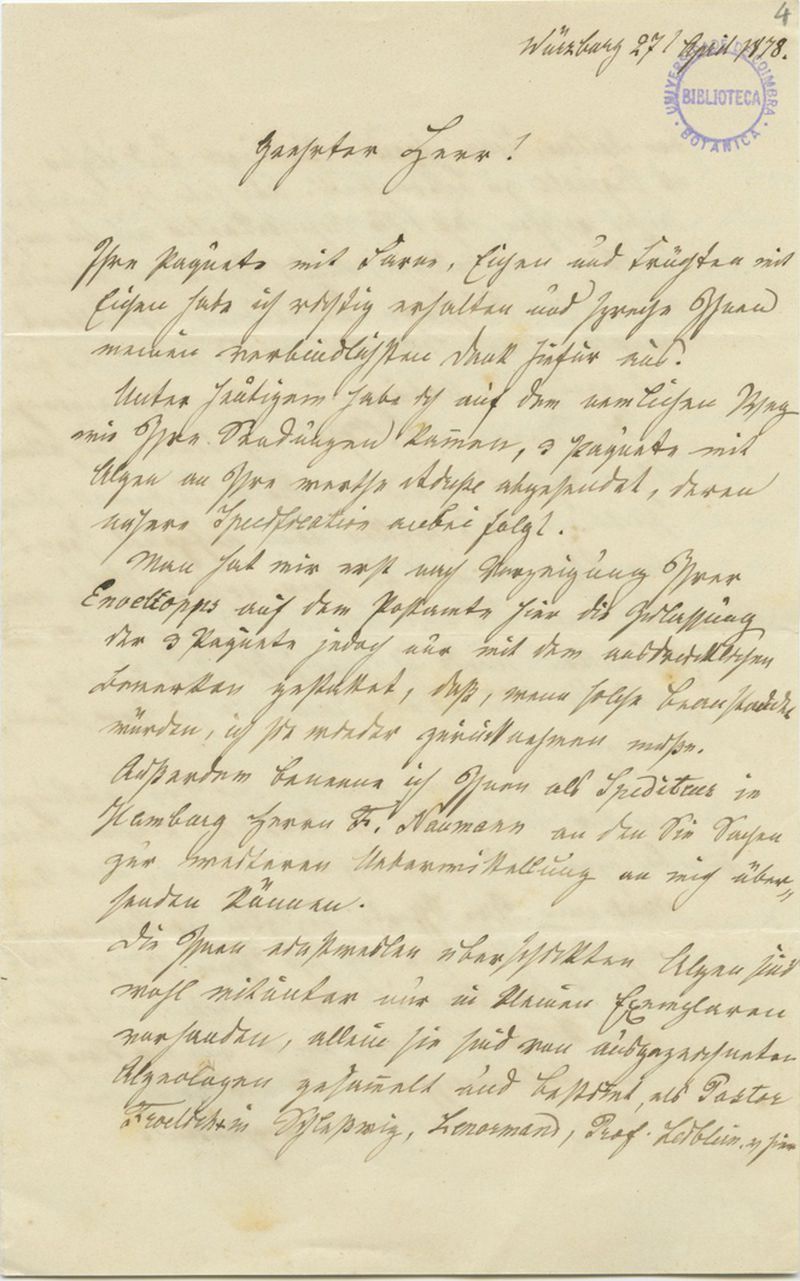 4
Würzburg 27/ April 1878.
UNIVERSIDADE DE COIMBRA
BIBLIOTECA
BOTANICA
Geehrter Herr!
Ihre Paquete mit Farne, Eichen und Früchten mit
Eichen habe ich richtig erhalten und spreche Ihnen
meinen verbindlichsten Dank hiefür aus.
Unter heutigem habe ich auf dem nemlichen Weg
wie Ihre Sendungen kamen, 3 Paquete mit
Algen an Ihre werthe Adreße abgesendet, deren
nähere Specification anbei folgt.
Man hat mir erst nach Vorzeigung Ihrer
Envelopps auf dem Postamte hier die Zulassung
der 3 Paquete jedoch nur mit dem ausdrücklichen
Bemerken gestattet, daß, wenn solche beanstandet
würden, ich sie wieder zurücknehmen müße.
Außerdem benenne ich Ihnen als Spediteur in
Hamburg Herrn F. Naumann an den Sie Sachen
zur weiteren Uebermittellung an mich über-
senden können.
Die Ihnen einstweilen überschickten Algen sind
wohl mitunter nur in kleinen Exemplaren
vorhanden, allein sie sind von ausgezeichneten
Algeologen gesammelt und bestimt, als Pastor
in Schleßwig, Lenormand, Prof. Leiblein